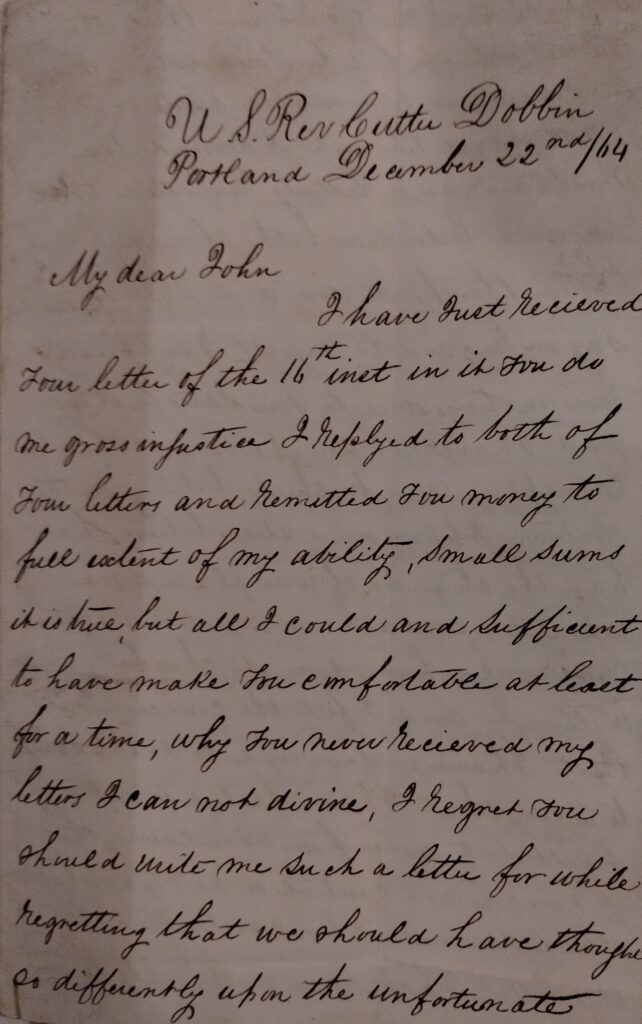 U S. Rev Cutter Dobbin
Portland December 22nd/64
My dear John
I have Just recieved
Your letter of the 16th inst in it You do
me gross injustice I replyed to both of
Your letters and remitted You money to
full extent of my ability, Small sums
it is true, but all I could and Sufficient
to have make You comfortable at least
for a time, why You never recieved my
letters I can not divine, I regret You
should write me such a letter for while
regretting that we should have thought
so differently upon the unfortunate